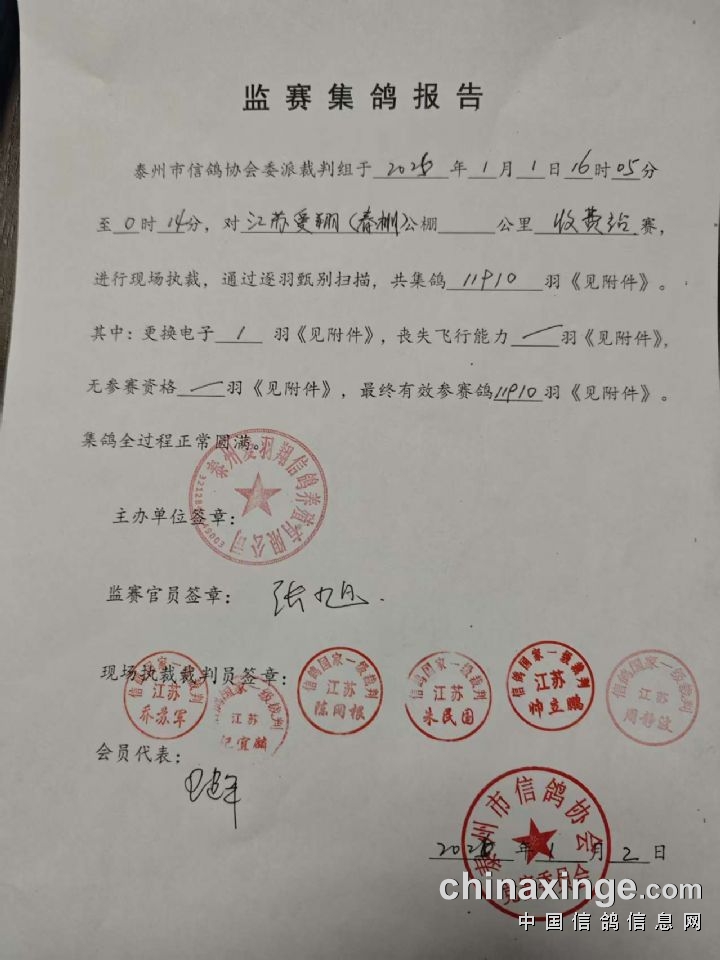 监赛集鸽报告
泰州市信鸽协会委派裁判组于 2026 年 1 月 1 日 16 时 05 分
至 0 时 14 分，对 江苏爱翔（春棚）公棚 公里 收费站 赛，
进行现场执裁，通过逐羽甄别扫描，共集鸽 11910 羽《见附件》。
其中：更换电子 1 羽《见附件》，丧失飞行能力 / 羽《见附件》，
无参赛资格 / 羽《见附件》，最终有效参赛鸽 11910 羽《见附件》。
集鸽全过程正常圆满。
泰州爱羽翔信鸽养殖有限公司
主办单位签章：
监赛官员签章： 张旭
现场执裁裁判员签章：
信鸽国家一级裁判 江苏 乔苏军
信鸽国家一级裁判 江苏 纪宜麟
信鸽国家一级裁判 江苏 陈网根
信鸽国家一级裁判 江苏 朱民国
信鸽国家一级裁判 江苏 帅立鹏
信鸽国家一级裁判 江苏 周静波
会员代表：
泰州市信鸽协会
竞赛委员会
2026 年 1 月 2 日
chinaxinge.com
中国信鸽信息网